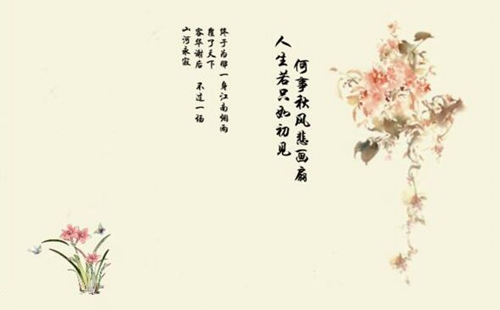 人生若只如初见
何事秋风悲画扇
终于为那一身江南烟雨
覆了天下
容华谢后 不过一场
山河永寂